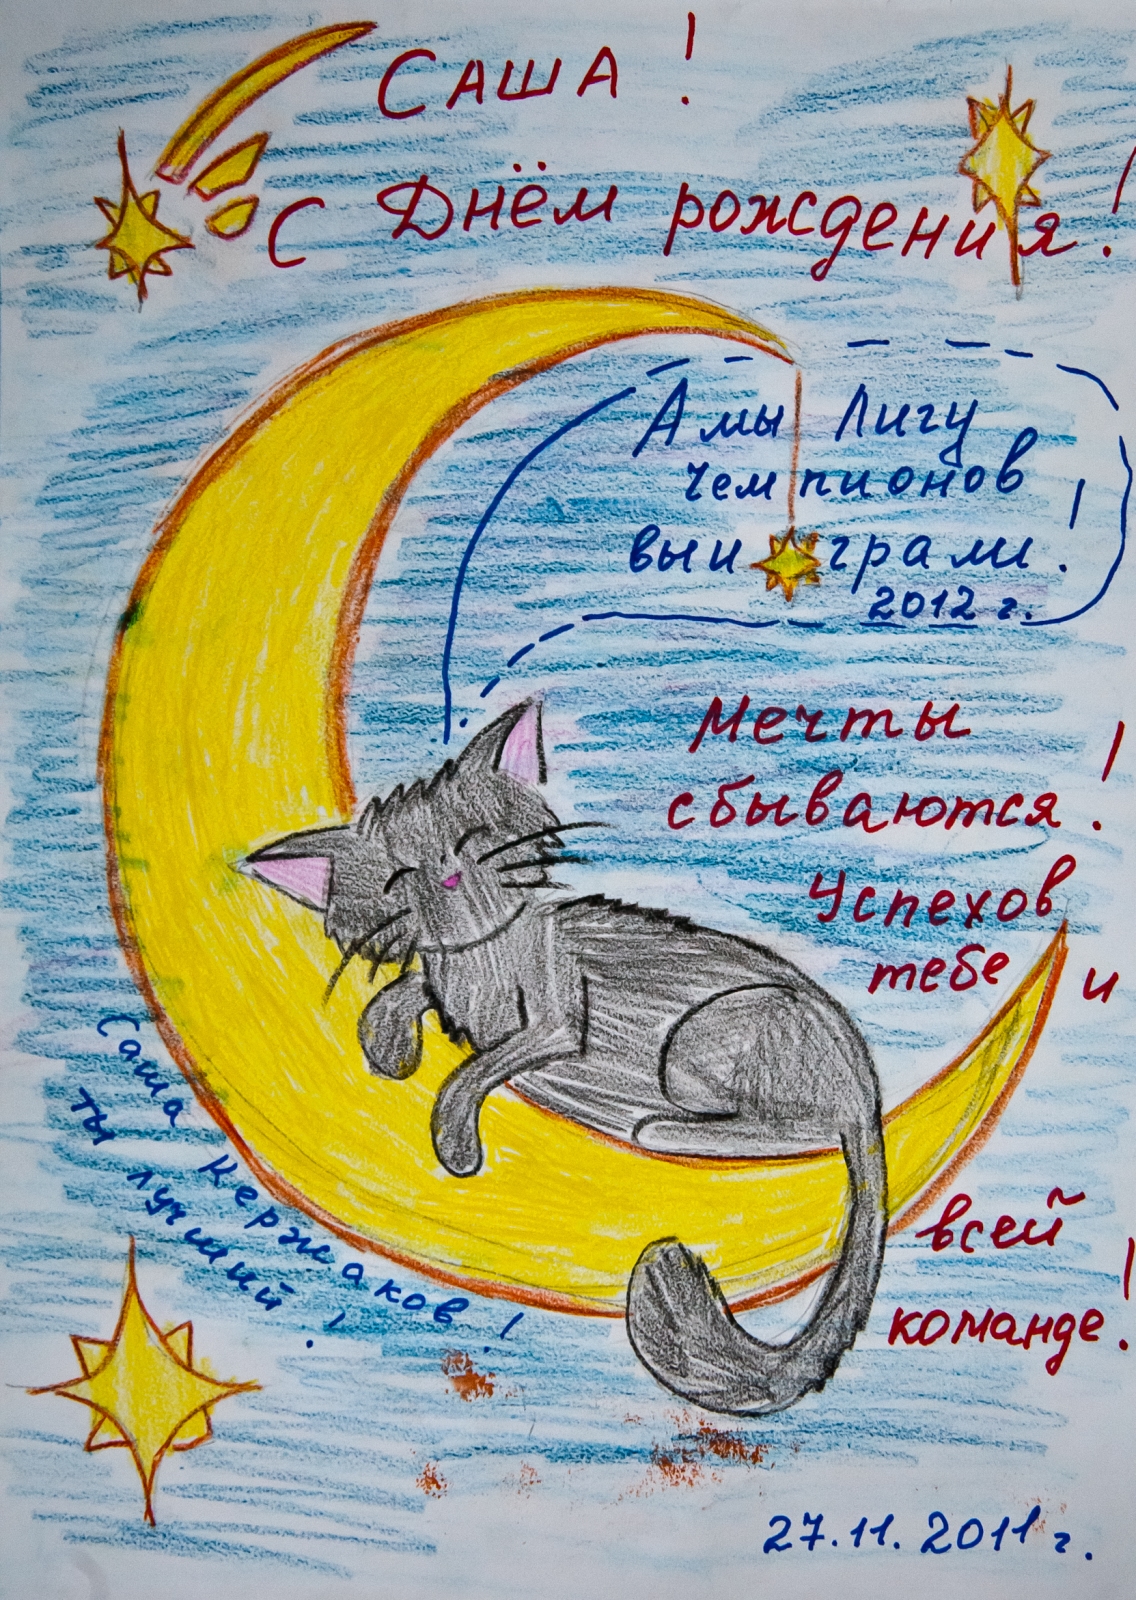 Саша!
С Днём рождения!
А мы Лигу
чемпионов
выиграли!
2012 г.
Мечты
сбываются!
Успехов
тебе и
всей
команде!
Саша Кержаков!
ты лучший!
27.11.2011 г.